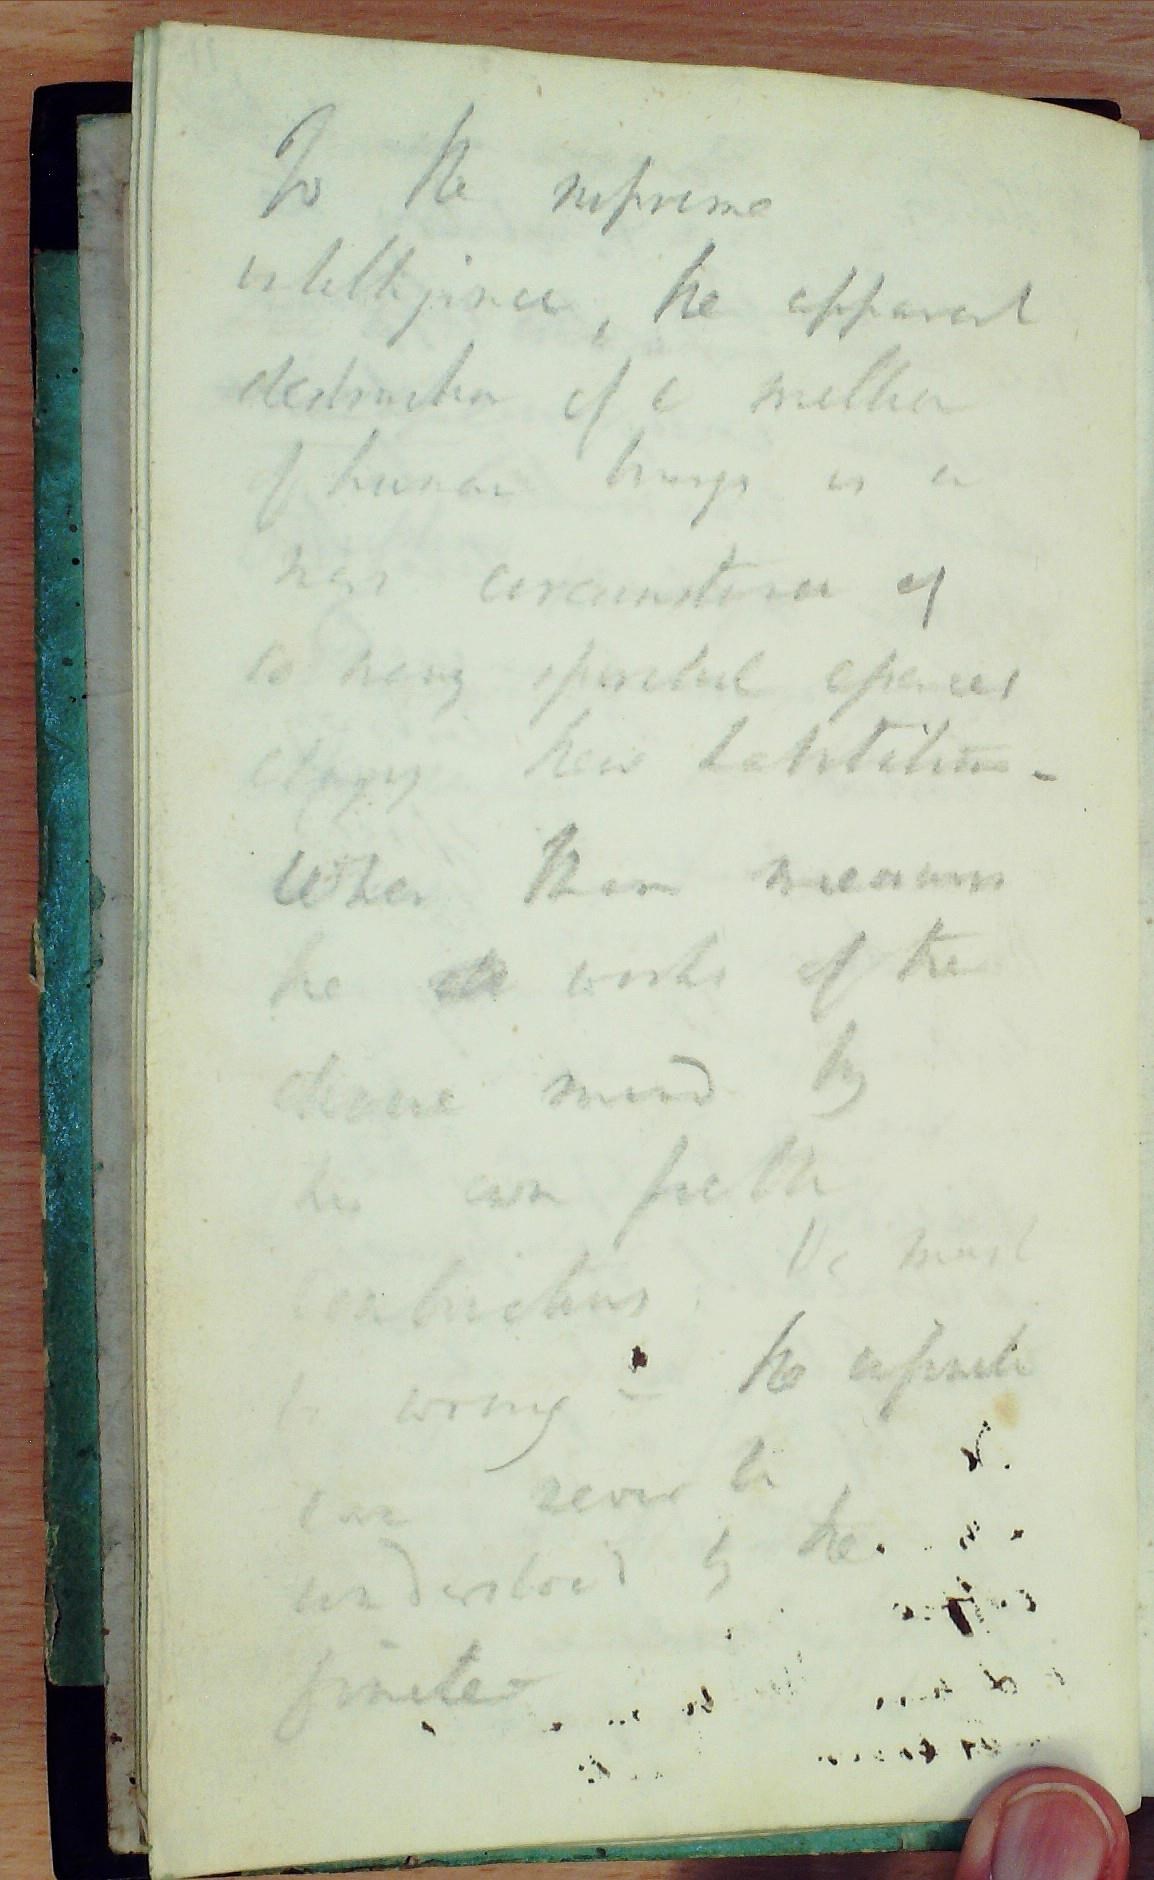 To the supreme
intelligence, the apparent
destruction of a million
of human beings is a
mere circumstance of
so many spiritual essences
changing their habitations -
When Man measures
the works of the
divine mind by
his own feeble
Combinations. He must
be wrong - the infinite
can never be
understood by the
finite -